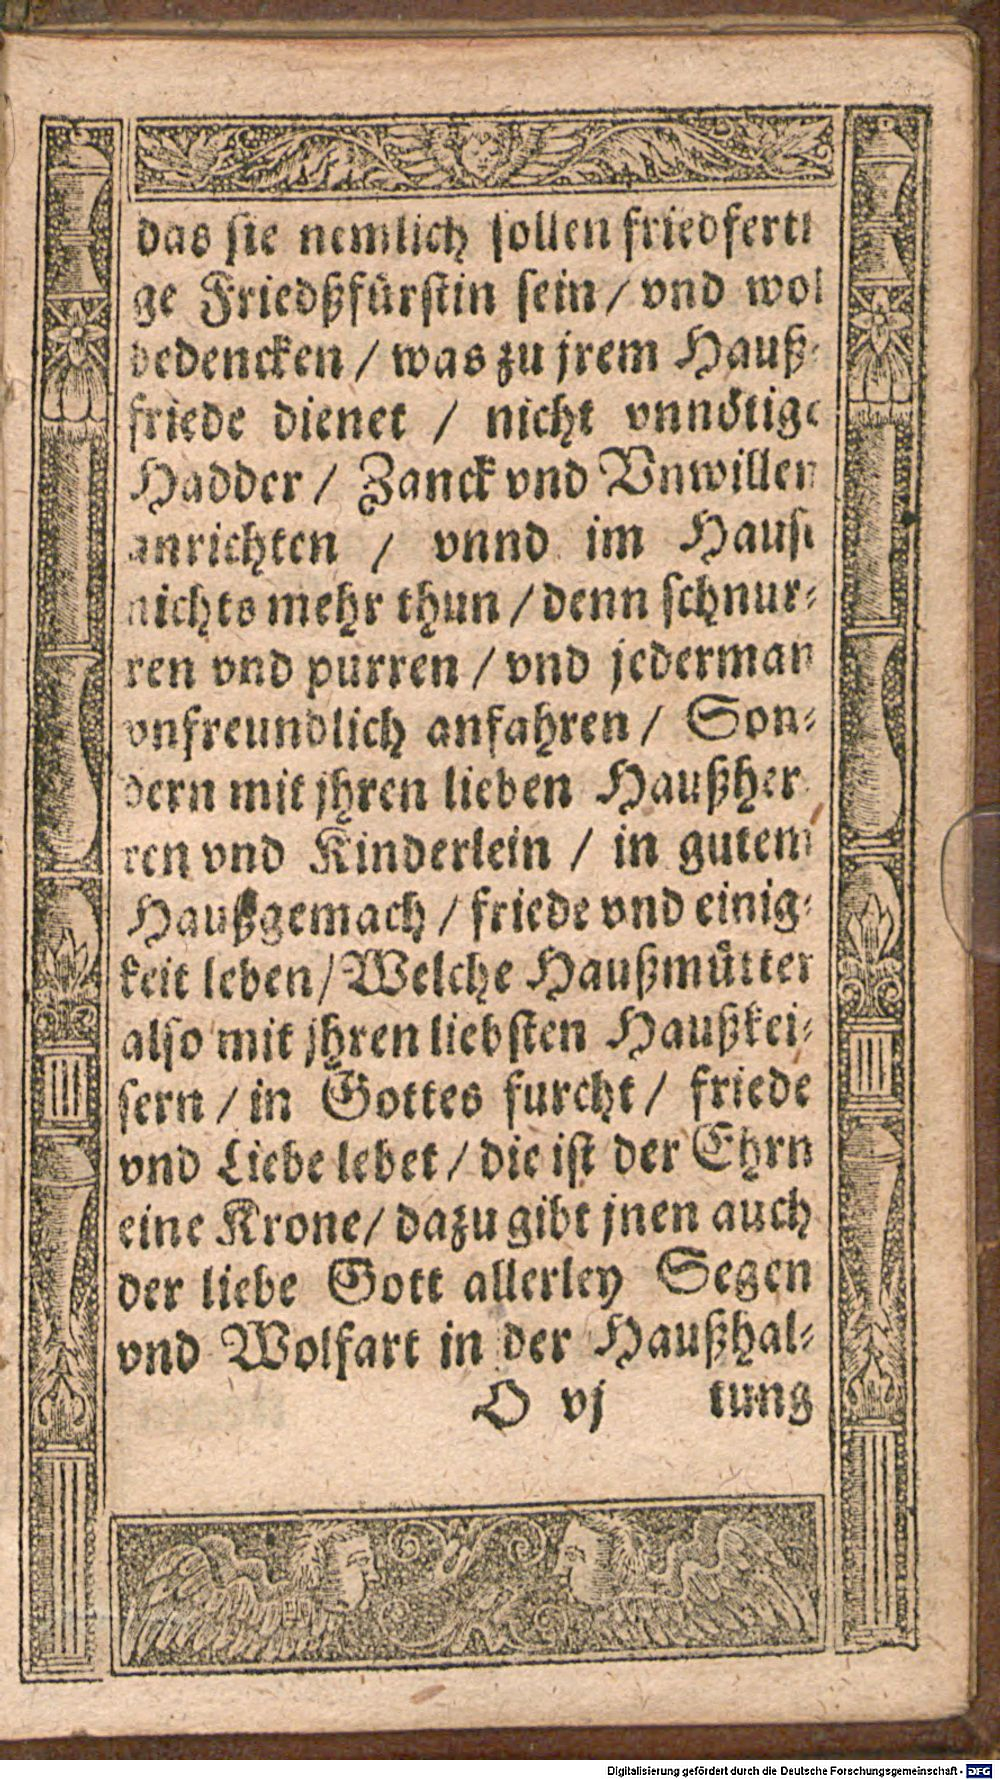 das sie nemlich sollen friedferti
ge Friedßfürstin sein / vnd wol
bedencken / was zu jrem Hauß⸗
friede dienet / nicht vnnötige
Hadder / Zanck vnd Vnwillen
anrichten / vnnd im Hause
nichts mehr thun / denn schnur⸗
ren vnd purren / vnd jederman
vnfreundlich anfahren / Son⸗
dern mit jhren lieben Haußher
ren vnd Kinderlein / in gutem
Haußgemach / friede vnd einig⸗
keit leben / Welche Haußmütter
also mit jhren liebsten Haußkei⸗
sern / in Gottes furcht / friede
vnd Liebe lebet / die ist der Ehrn
eine Krone / dazu gibt jnen auch
der liebe Gott allerley Segen
vnd Wolfart in der Haußhal⸗
O vj tung
Digitalisierung gefördert durch die Deutsche Forschungsgemeinschaft - DFG